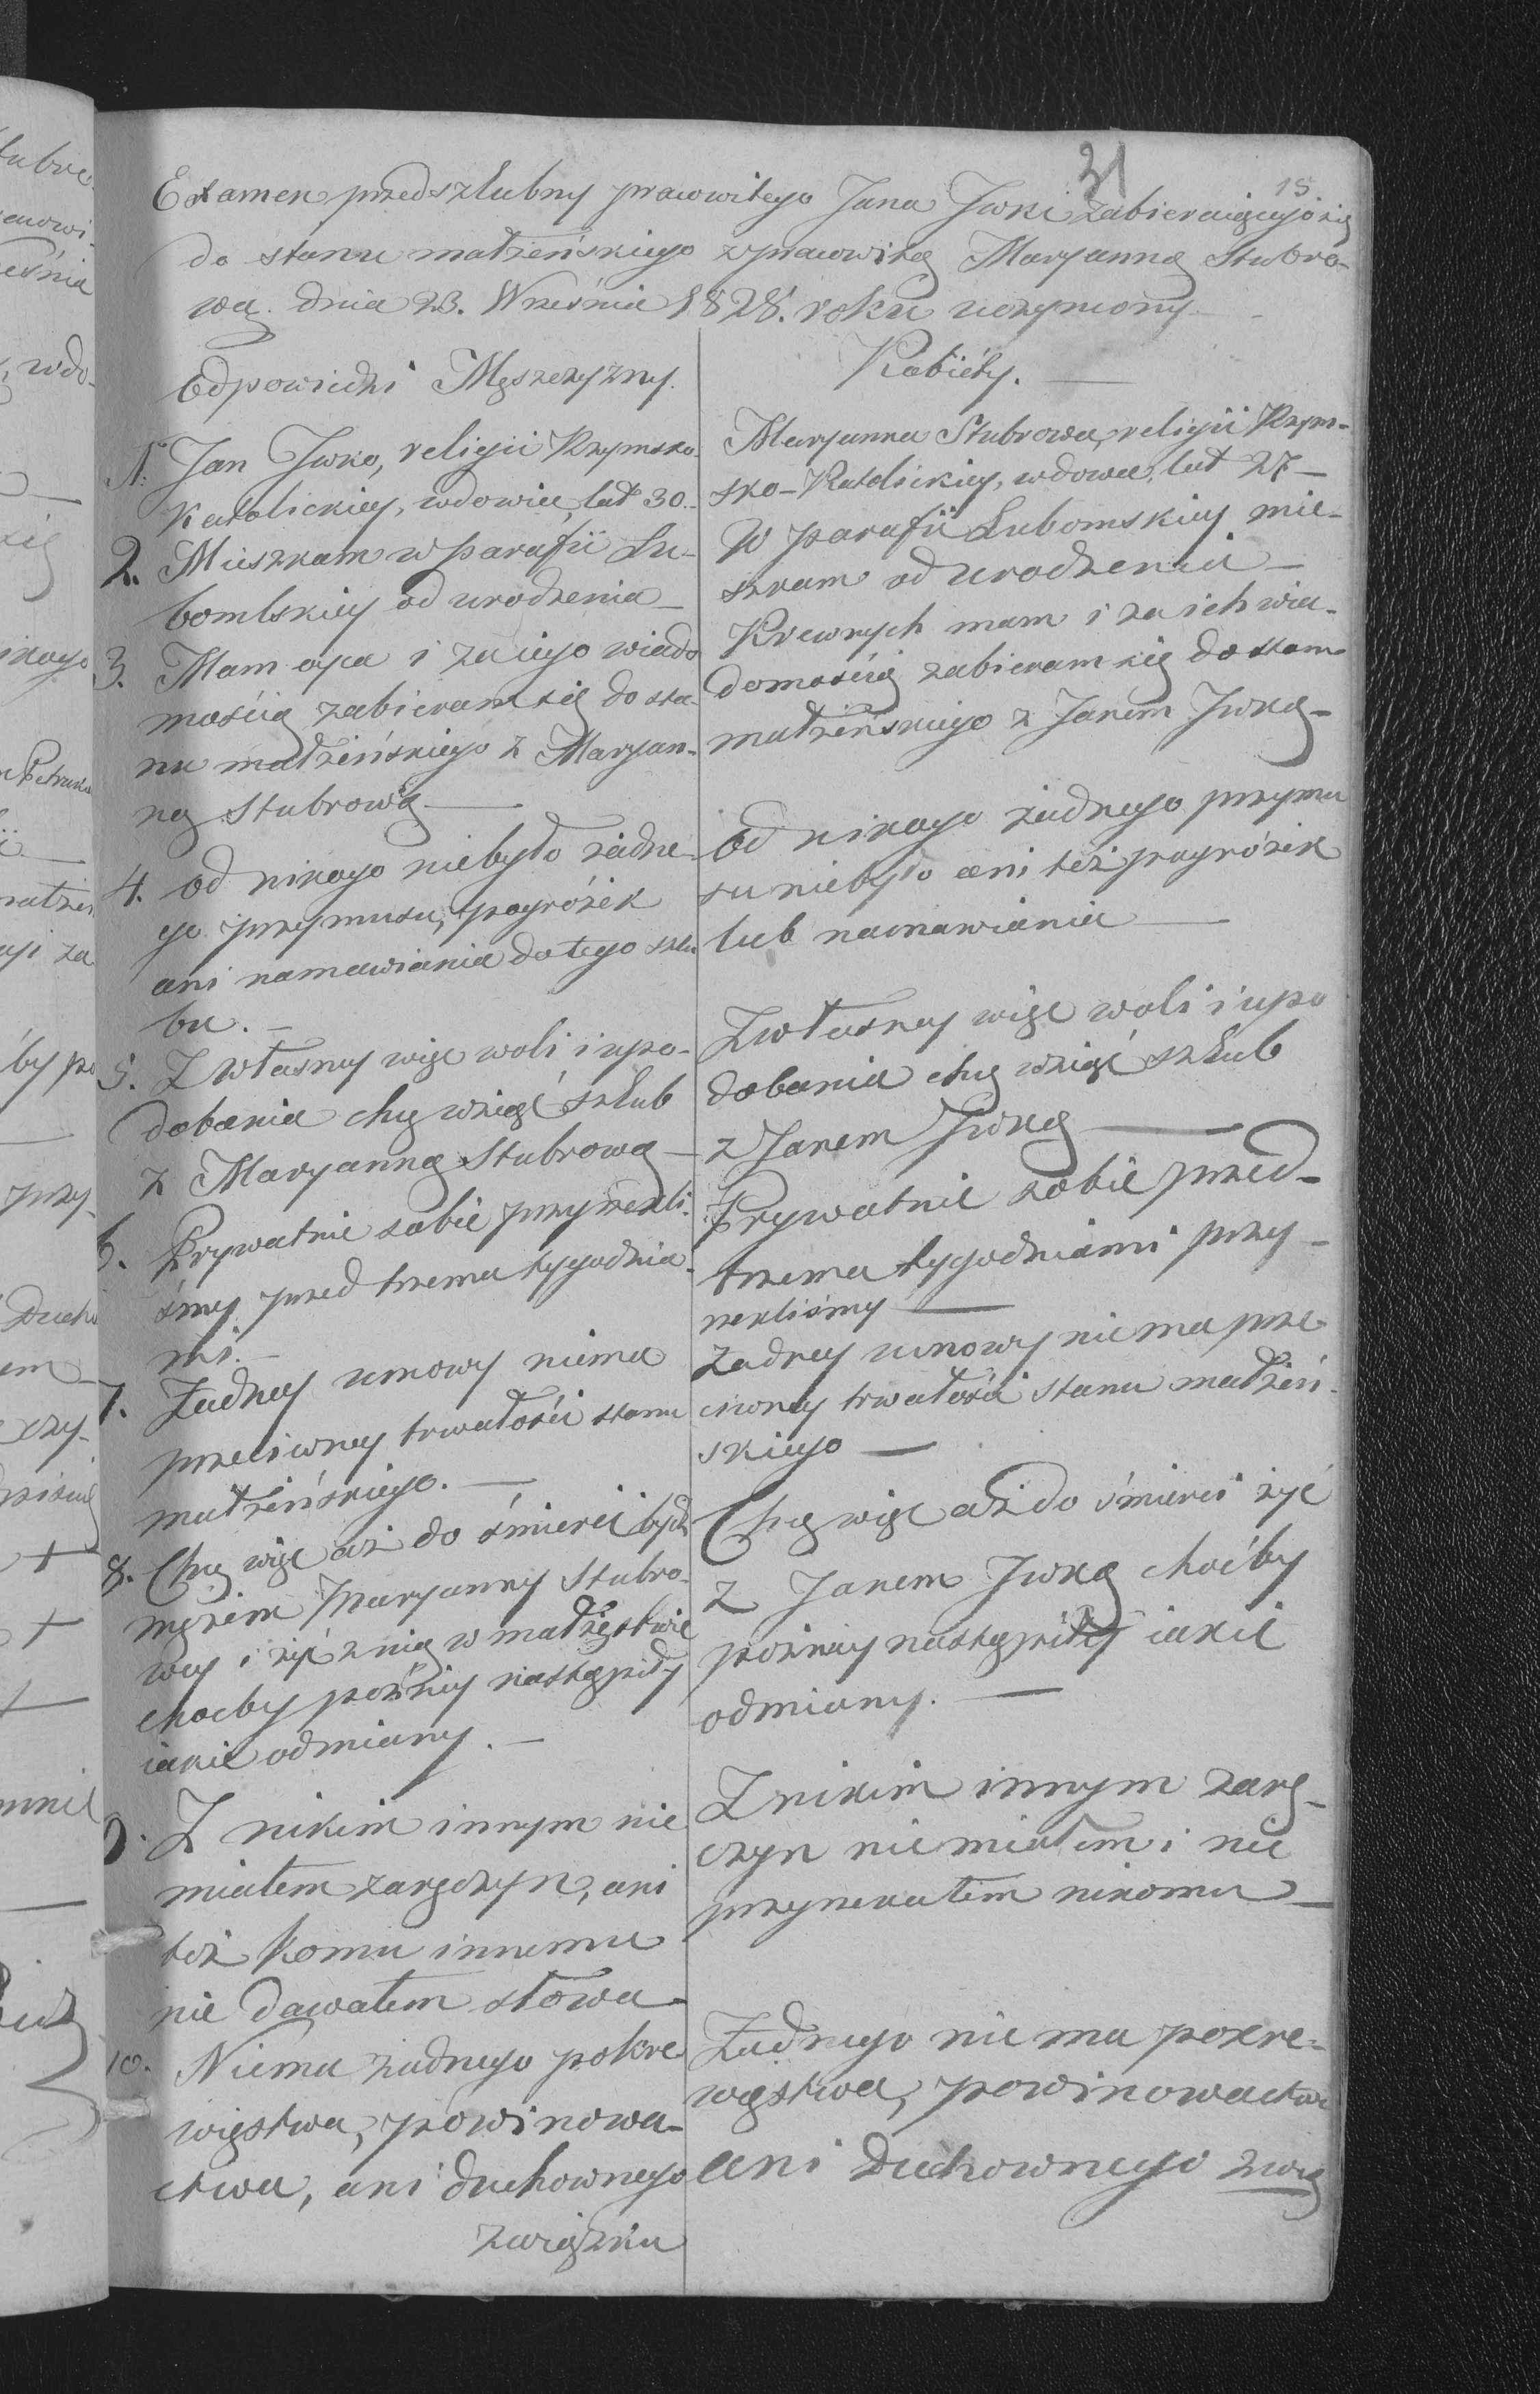 31
15.
Examen przedszlubny prawowitego Jana Iwki zabieraiącego się
do stanu małżeńskiego z prawowitą Maryanną Stubro-
wą. dnia 23. Września 1828. roku uczyniony
Odpowiedzi Męszczyzny.
1. Jan Iwko, religii Rzymsko-
Katolickiey, wdowiec, lat 30.
2. Mieszkam w parafii Lu-
bomlskiey od urodzenia
3. Mam oyca i za iego wiado
mością zabieram się do sta-
nu małżeńskiego z Maryan-
ną Stubrową
4. od nikogo niebyło żadne-
go przymusu, pogróżek
ani namawiania do tego szlu
bu.
5. Z własney więc woli i upo-
dobania chcę wziąć szlub
z Maryanną Stubrową
6. Prywatnie sobie przyrzekli-
śmy przed trzema tygodnia-
mi.
7. Żadney umowy niema
przeciwney trwałości stanu
małżeńskiego.
8. Chcę więc aż do śmierci bydź
mężem Maryanny Stubro-
wey i żyć z nią w małżęstwie
choćby pożniey nastąpiły
iakie odmiany.
9. Z nikim innym nie
miałem zaręczyn, ani
też komu innemu
nie dawałem słowa
10. Niema żadnego pokre
więstwa, powinowa-
ctwa, ani duchownego
związku
Kobiéty.
Maryanna Stubrowa, religii Rzym-
sko-Katolickiey, wdowa, lat 27
W parafii Lubomskiey mie-
szkam od urodzenia
Krewnych mam i za ich wia-
domością zabieram się do stanu
małżeńskiego z Janem Iwką
Od nikogo żadnego przymu
su niebyło ani też pogróżek
lub namawiania
Z własney więc woli i upo
dobania chcę wziąć szlub
z Janem Iwką
Prywatnie sobie przed-
trzema tygodniami przy-
rzekliśmy
Żadney umowy nie ma prze
ciwney trwałości stanu małżeń-
skiego
Chcę więc aż do śmierci żyć
z Janem Iwką choćby
pożniey nastąpiły iakie
odmiany.
Z nikim innym zarę-
czyn nie miałem i nie
przyrzekałem nikomu
Żadnego nie ma pokre-
węstwa, powinowactwa
ani Duchownego zwią